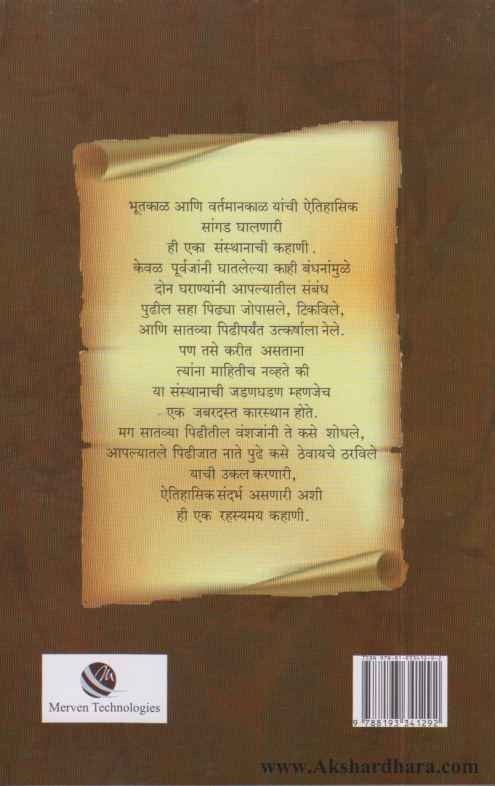 भूतकाळ आणि वर्तमानकाळ यांची ऐतिहासिक
सांगड घालणारी
ही एका संस्थानाची कहाणी .
केवळ पूर्वजांनी घातलेल्या काही बंधनांमुळे
दोन घराण्यांनी आपल्यातील संबंध
पुढील सहा पिढ्या जोपासले, टिकविले,
आणि सातव्या पिढीपर्यंत उत्कर्षाला नेले.
पण तसे करीत असताना
त्यांना माहितीच नव्हते की
या संस्थानाची जडणघडण म्हणजेच
एक जबरदस्त कारस्थान होते.
मग सातव्या पिढीतील वंशजांनी ते कसे शोधले,
आपल्यातले पिढीजात नाते पुढे कसे ठेवायचे ठरविले
याची उकल करणारी,
ऐतिहासिक संदर्भ असणारी अशी
ही एक रहस्यमय कहाणी.
Merven Technologies
9 788193 341292
www.Akshardhara.com